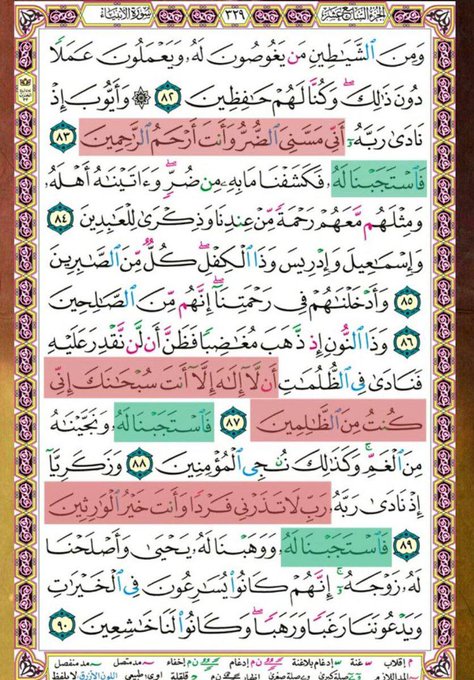 الجزء السابع عشر ٣٢٩ سورة الأنبياء
وَمِنَ ٱلشَّيَٰطِينِ مَن يَغُوصُونَ لَهُۥ وَيَعْمَلُونَ عَمَلًا
دُونَ ذَٰلِكَ ۖ وَكُنَّا لَهُمْ حَٰفِظِينَ ٨٢ ۞ وَأَيُّوبَ إِذْ
نَادَىٰ رَبَّهُۥٓ أَنِّى مَسَّنِىَ ٱلضُّرُّ وَأَنتَ أَرْحَمُ ٱلرَّٰحِمِينَ ٨٣
فَٱسْتَجَبْنَا لَهُۥ فَكَشَفْنَا مَا بِهِۦ مِن ضُرٍّ ۖ وَءَاتَيْنَٰهُ أَهْلَهُۥ
وَمِثْلَهُم مَّعَهُمْ رَحْمَةً مِّنْ عِندِنَا وَذِكْرَىٰ لِلْعَٰبِدِينَ ٨٤
وَإِسْمَٰعِيلَ وَإِدْرِيسَ وَذَا ٱلْكِفْلِ ۖ كُلٌّ مِّنَ ٱلصَّٰبِرِينَ
٨٥ وَأَدْخَلْنَٰهُمْ فِى رَحْمَتِنَآ ۖ إِنَّهُم مِّنَ ٱلصَّٰلِحِينَ
٨٦ وَذَا ٱلنُّونِ إِذ ذَّهَبَ مُغَٰضِبًا فَظَنَّ أَن لَّن نَّقْدِرَ عَلَيْهِ
فَنَادَىٰ فِى ٱلظُّلُمَٰتِ أَن لَّآ إِلَٰهَ إِلَّآ أَنتَ سُبْحَٰنَكَ إِنِّى
كُنتُ مِنَ ٱلظَّٰلِمِينَ ٨٧ فَٱسْتَجَبْنَا لَهُۥ وَنَجَّيْنَٰهُ
مِنَ ٱلْغَمِّ ۚ وَكَذَٰلِكَ نُـۨجِى ٱلْمُؤْمِنِينَ ٨٨ وَزَكَرِيَّآ
إِذْ نَادَىٰ رَبَّهُۥ رَبِّ لَا تَذَرْنِى فَرْدًا وَأَنتَ خَيْرُ ٱلْوَٰرِثِينَ
٨٩ فَٱسْتَجَبْنَا لَهُۥ وَوَهَبْنَا لَهُۥ يَحْيَىٰ وَأَصْلَحْنَا
لَهُۥ زَوْجَهُۥٓ ۚ إِنَّهُمْ كَانُوا۟ يُسَٰرِعُونَ فِى ٱلْخَيْرَٰتِ
وَيَدْعُونَنَا رَغَبًا وَرَهَبًا ۖ وَكَانُوا۟ لَنَا خَٰشِعِينَ ٩٠